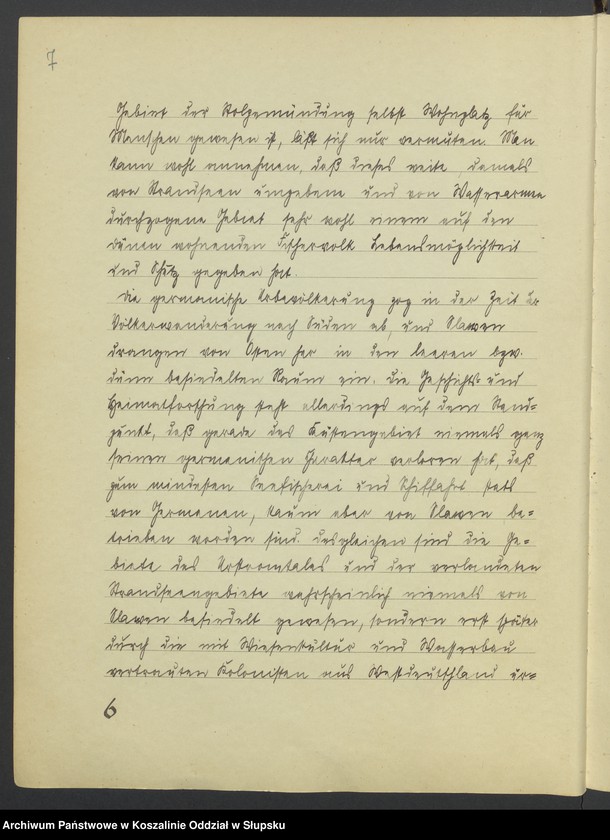 7
Gebiet der Stolpemündung selbst Wohnplatz für
Menschen gewesen ist, läßt sich nur vermuten. Man
kann wohl annehmen, daß dieses weite, damals
von Strandseen umgebene und von Wasserarmen
durchzogene Gebiet sehr wohl einem auf den
Dünen wohnenden Fischervolk Lebensmöglichkeit
und Schutz gegeben hat.
Die germanische Urbevölkerung zog in der Zeit der
Völkerwanderung nach Süden ab, und Slawen
drangen von Osten her in den leeren bzw.
dünn besiedelten Raum ein. Die Geschichts- und
Heimatforschung steht allerdings auf dem Stand-
punkt, daß gerade das Küstengebiet niemals ganz
seinen germanischen Charakter verloren hat, daß
zum mindesten Seefischerei und Schiffahrt stets
von Germanen, kaum aber von Slawen be-
trieben worden sind. Desgleichen sind die Ge-
biete des Urstromtales und der verlandeten
Strandseengebiete wahrscheinlich niemals von
Slawen besiedelt gewesen, sondern erst später
durch die mit Wiesenkultur und Wasserbau
vertrauten Kolonisten aus Westdeutschland ur-
6
Archiwum Państwowe w Koszalinie Oddział w Słupsku